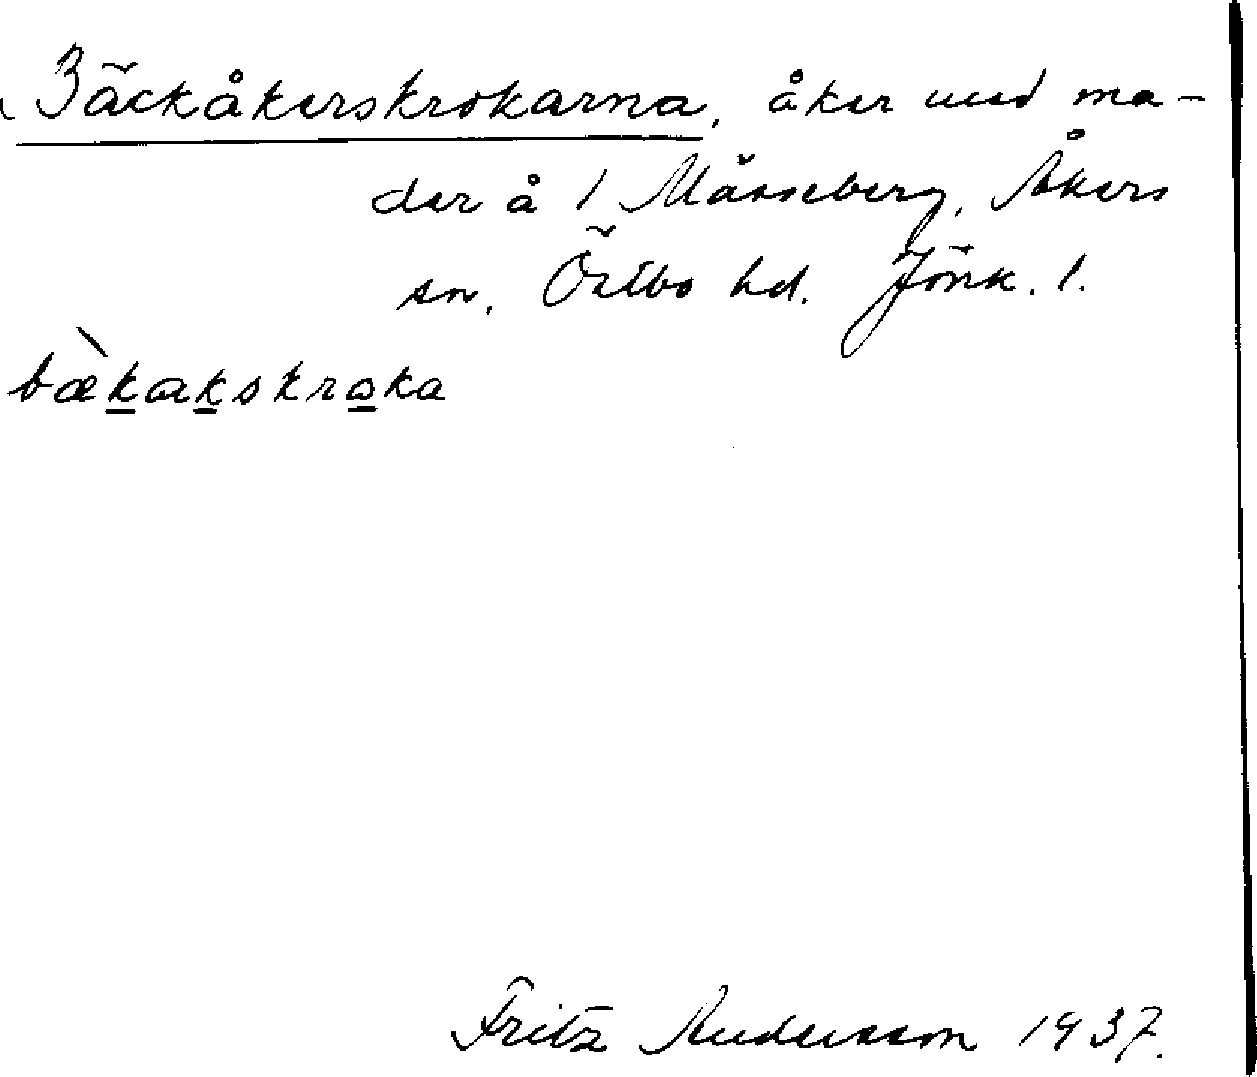 Bäckåkerskrokarna, åker med ma-
der å 1 Mässeberg, Åkers
sn, Östbo hd. Jönk. l.
bæ̀kakskroka
Fritz Andersson 1937.